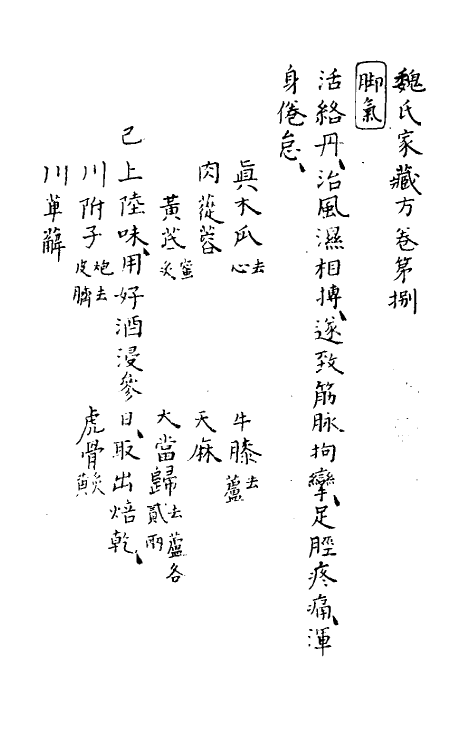 魏氏家藏方卷第捌
脚氣
活絡丹、治風濕相搏、遂致筋脉拘攣、足脛疼痛、渾
身倦怠、
眞木瓜去心 牛膝去蘆
肉蓯蓉 天麻
黃芪蜜炙 大當歸去蘆各貳兩
已上陸味、用好酒浸參日、取出焙乾、
川附子炮去皮臍 虎骨黄炙
川萆薢